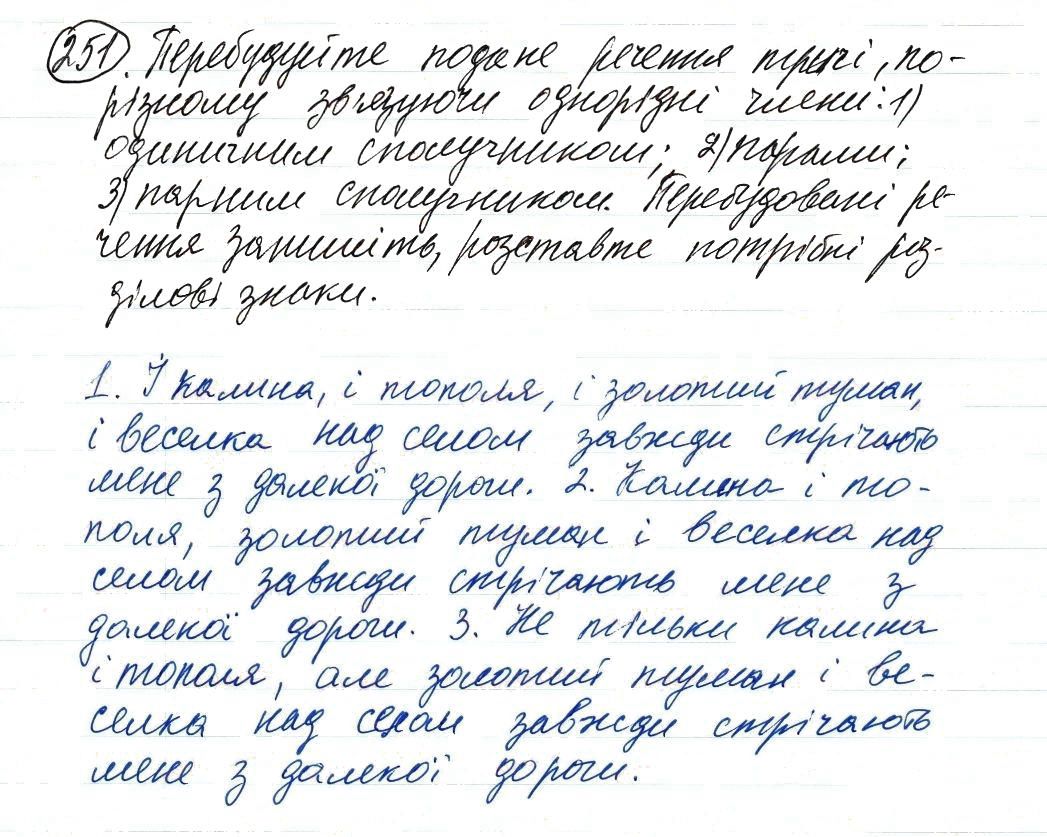 251. Перебудуйте подане речення тричі, по-
різному зв'язуючи однорідні члени: 1)
одиничним сполучником; 2) парами;
3) парним сполучником. Перебудовані ре-
чення запишіть, розставте потрібні роз-
ділові знаки.
1. І калина, і тополя, і золотий туман,
і веселка над селом завжди стрічають
мене з далекої дороги. 2. Калина і то-
поля, золотий туман і веселка над
селом завжди стрічають мене з
далекої дороги. 3. Не тільки калина
і тополя, але золотий туман і ве-
селка над селом завжди стрічають
мене з далекої дороги.